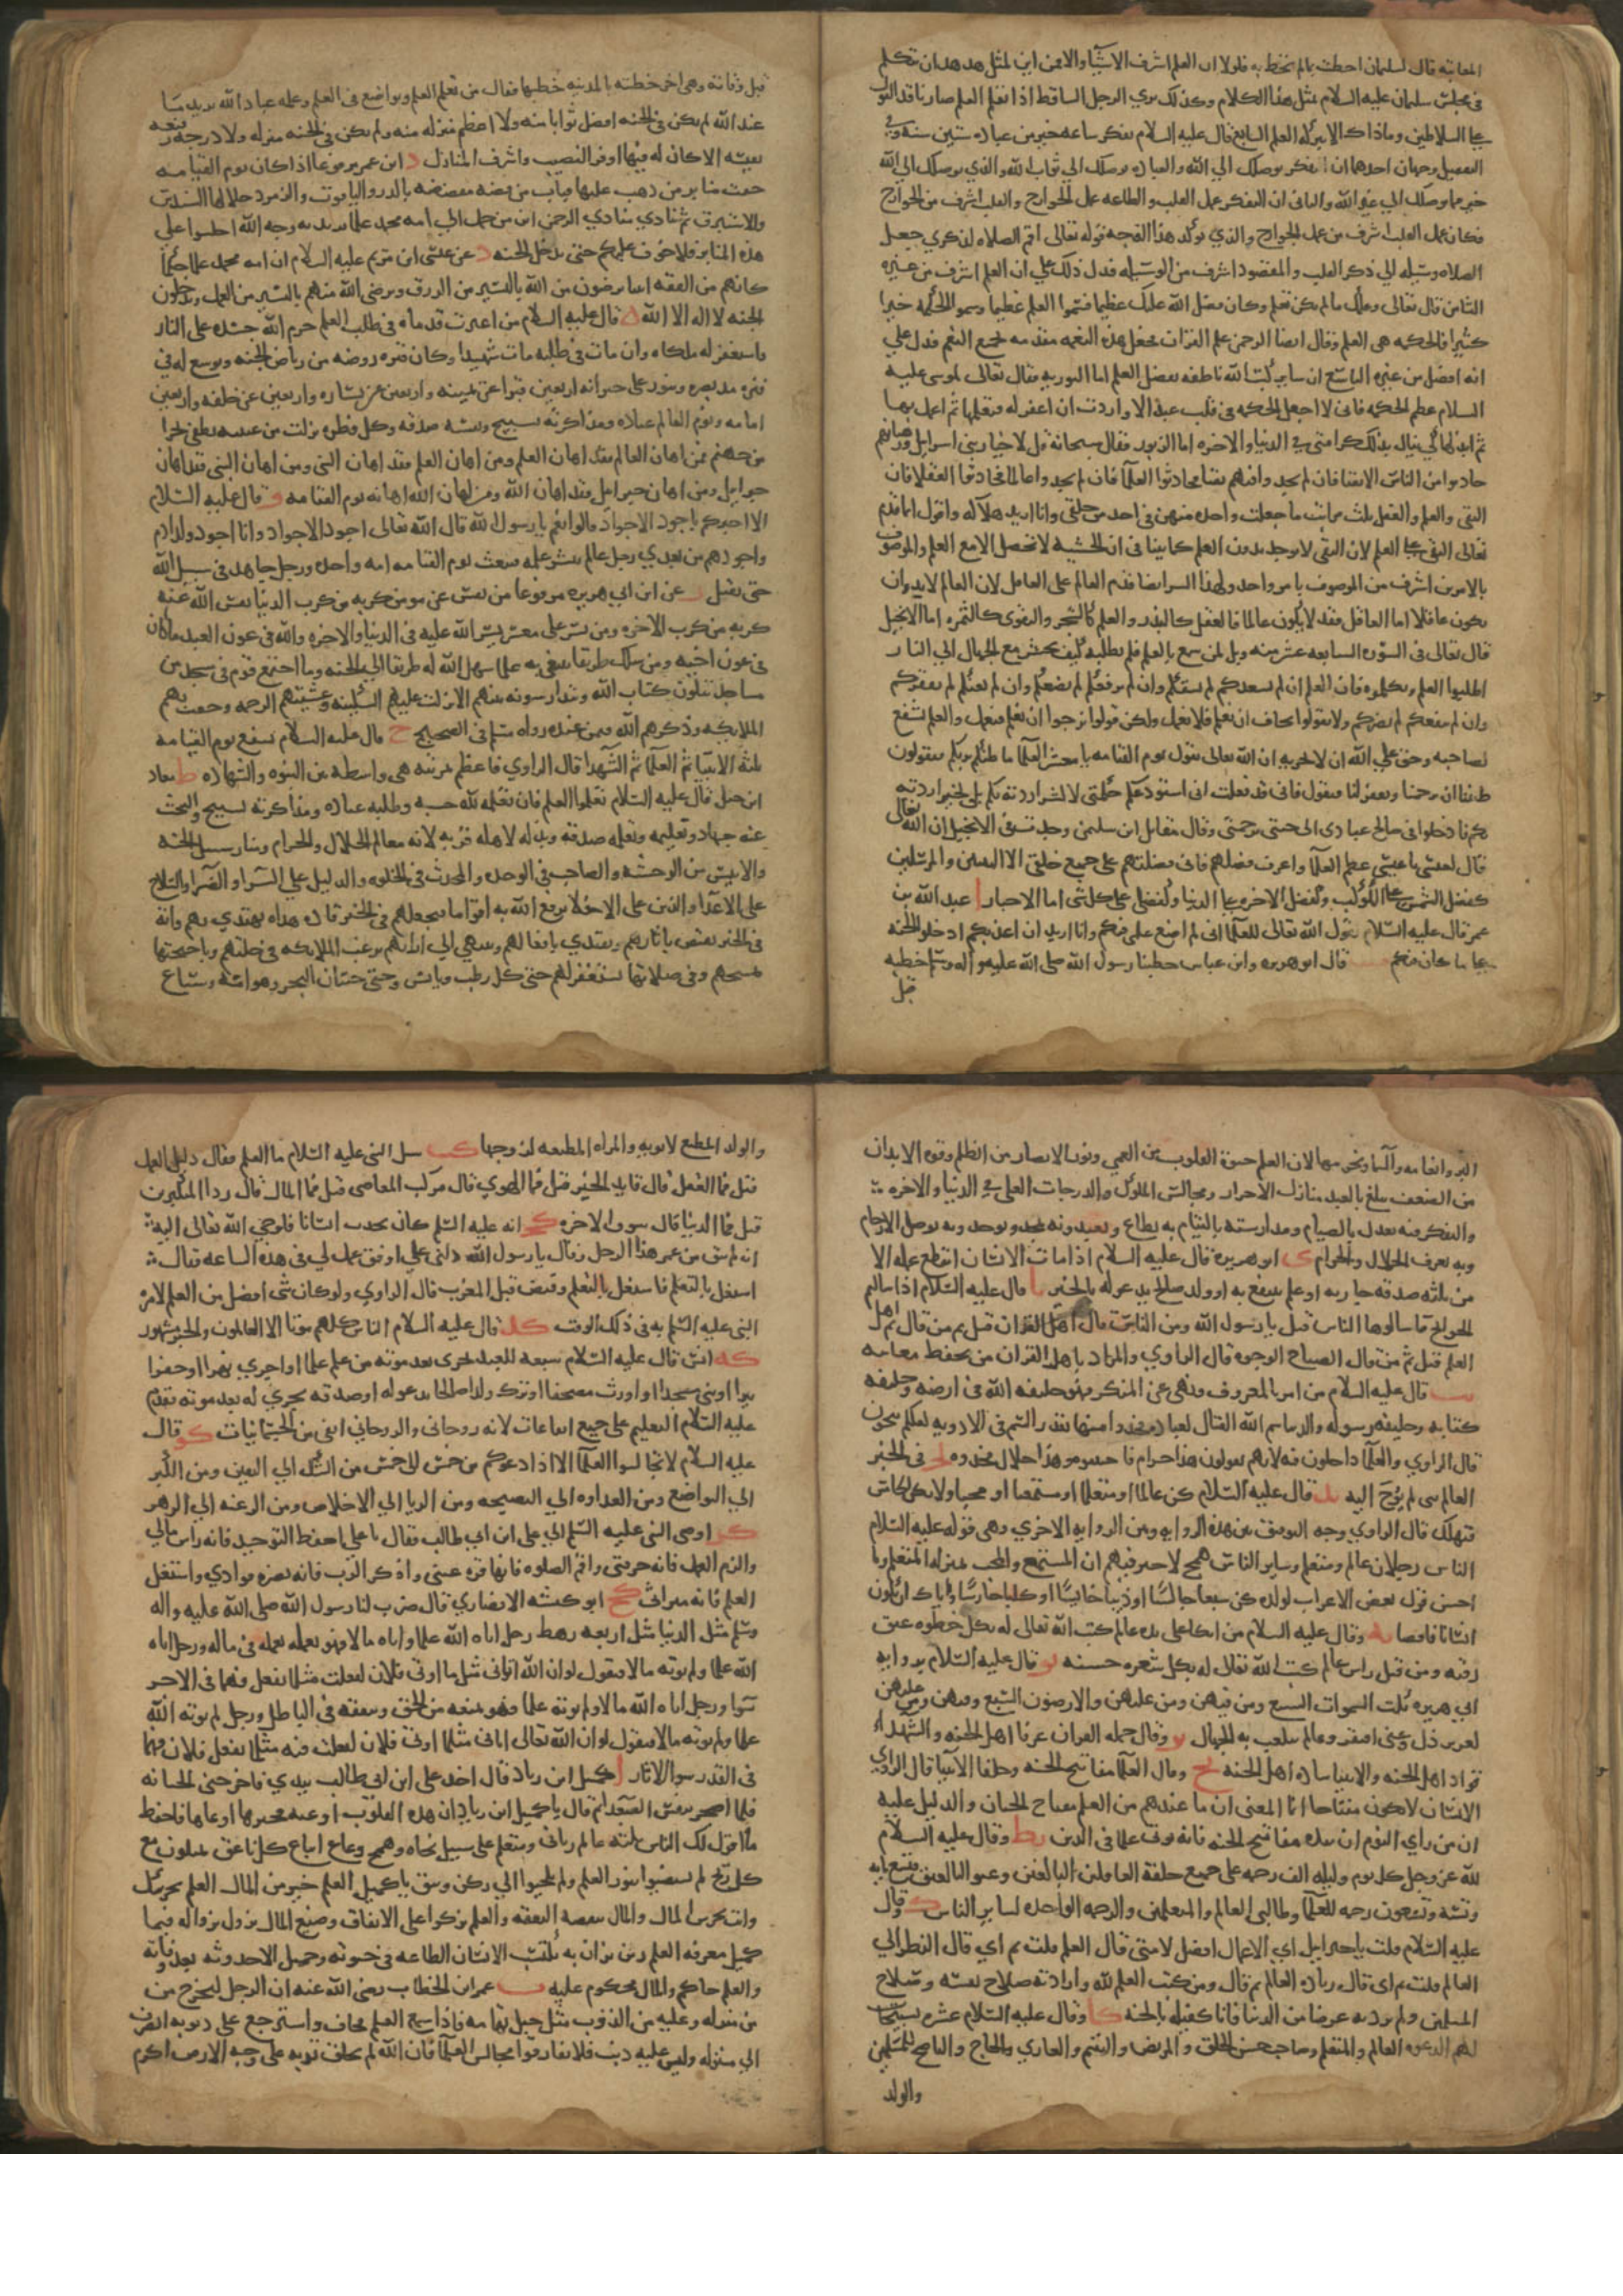 المعاتبة قال لسليمان احطت بمالم تحط به فلولا ان العلم اشرف الاشيا والا فمن اين لمثل هدهد ان تتكلم
في مجلس سلمان عليه السلام بمثل هذا الكلام وكذلك يري الرجل الساقط اذا تعلم العلم صار نافذ القول
علي السلاطين وماذاك الا ببركة العلم السابع قال عليه السلام تفكر ساعه خير من عباده ستين سنه وفي
التفضيل وجهان احدهما ان التفكر يوصلك الي الله والعباده توصلك الي ثواب الله والذي يوصلك الي الله
خير مما يوصلك الي غير الله والثاني ان التفكر عمل القلب والطاعه عمل الجوارح والقلب اشرف من الجوارح
فكان عمل القلب اشرف من عمل الجوارح والذي يوكد هذا الوجه قوله تعالى اقم الصلاه لذكري جعل
الصلاه وسيله الي ذكر القلب والمقصود اشرف من الوسيله فدل ذلك علي ان العلم اشرف من غيره
الثامن قال تعالى وعلمك مالم تكن تعلم وكان فضل الله عليك عظيما فسموا العلم عظيما وسموا الحكمه خيرا
كثيرا فالحكمه هي العلم وقال ايضا الرحمن علم القران فجعل هذه النعمه مقدمه لجميع النعم فدل علي
انه افضل من غيره التاسع ان ساير كتب الله ناطقه بفضل العلم اما التوريه فقال تعالى لموسى عليه
السلام عظم الحكمه فاني لا اجعل الحكمه في قلب عبد الا واردت ان اغفر له فتعلمها ثم اعمل بها
ثم ابذلها كي ينال بذلك كرامتي في الدنيا والاخره اما الزبور فقال سبحانه قل لاحبار بني اسرايل ورهبانهم
حادثوا من الناس الاتقيا فان لم تجدوا فيهم تقيا فحادثوا العلما فان لم تجدوا عالما فحادثوا العقلا فان
التقى والعلم والعقل ثلث مراتب ما جعلت واحده منهن في احد من خلقي وانا اريد هلاكه واقول انما قدم
تعالى التقى علي العلم لان التقى لا يوجد بدون العلم كما بينا في ان الخشيه لا تحصل الا مع العلم والموصوف
بالامرين اشرف من الموصوف بامر واحد ولهذا السر ايضا قدم العالم على العاقل لان العالم لا بد وان
يكون عاقلا اما العاقل فقد لا يكون عالما فالعقل كالبذر والعلم كالشجر والتقوى كالثمره اما الانجيل
قال تعالى في السوره السابعه عشر منه ويل لمن سمع بالعلم فلم يطلبه كيف يحشر مع الجهال الي النار
اطلبوا العلم وتعلموه فان العلم ان لم يسعدكم لم يشقكم وان لم يرفعكم لم يضعكم وان لم يغنكم لم يفقركم
وان لم ينفعكم لم يضركم ولا تقولوا نخاف ان نعلم فلا نعمل ولكن قولوا نرجوا ان نعلم فنعمل والعلم شفع
لصاحبه وحق علي الله ان لا يخزيه ان الله تعالى يقول يوم القيامه يا معشر العلما ما ظنكم بربكم فيقولون
ظننا ان يرحمنا ويغفر لنا فيقول فاني قد فعلت اني استودعتكم حكمتي لا لشر اردته بكم بل لخير اردته
بكم فادخلوا في صالح عبادي الى جنتي برحمتي وقال مقاتل ابن سليمن وجدت في الانجيل ان الله تعالى
قال لعيسى يا عيسى عظم العلما واعرف فضلهم فاني فضلتهم على جميع خلقي الا النبيين والمرسلين
كفضل الشمس علي الكواكب وكفضل الاخره علي الدنيا وكفضلي على كل شي اما الاخبار ا عبد الله بن
عمر قال عليه السلام يقول الله تعالى للعلما اني لم اضع علمي فيكم وانا اريد ان اعذبكم ادخلوا الجنه
علي ما كان منكم ب قال ابو هريره وابن عباس خطبنا رسول الله صلى الله عليه واله وسلم خطبه
قبل
قبل وفاته وهي اخر خطبته بالمدينه خطبها فقال من تعلم العلم وتواضع في العلم وعلمه عباد الله يريد ما
عند الله لم يكن في الجنه افضل ثوابا منه ولا اعظم منزله منه ولم يكن في الجنه منزله ولا درجه رفيعه
نفيسه الا كان له فيها اوفر النصيب واشرف المنازل د ابن عمر مرفوعا اذا كان يوم القيامه
صفت منابر من ذهب عليها قباب من فضه مفضضه بالدر والياقوت والزمرد جلالها السندس
والاستبرق ثم ينادي منادي الرحمن اين من حمل الي امه محمد علما يريد به وجه الله اجلسوا علي
هذه المنابر فلا خوف عليكم حتى تدخلوا الجنه د عن عيسى ابن مريم عليه السلام ان امه محمد علما حكما
كانهم من الفقه انبيا يرضون من الله باليسير من الرزق ويرضى الله منهم باليسير من العمل ويدخلون
الجنه لا اله الا الله ه قال عليه السلام من اغبرت قدماه في طلب العلم حرم الله جسده على النار
واستغفر له ملكاه وان مات في طلبه مات شهيدا وكان قبره روضه من رياض الجنه ويوسع له في
قبره مد بصره وينور على جيرانه اربعين قبرا عن يمينه واربعين عن يساره واربعين عن خلفه واربعين
امامه ونوم العالم عباده ومذاكرته تسبيح ونفسه صدقه وكل قطره نزلت من عينيه تطفي بحرا
من جهنم فمن اهان العالم فقد اهان العلم ومن اهان العلم فقد اهان النبي ومن اهان النبي فقد اهان
جبرايل ومن اهان جبرايل فقد اهان الله ومن اهان الله اهانه يوم القيامه و قال عليه السلام
الا اخبركم باجود الاجواد قالوا نعم يا رسول الله قال الله تعالى اجود الاجواد وانا اجود ولد ادم
واجودهم من بعدي رجل عالم ينشر علمه فيبعث يوم القيامه امه واحده ورجل جاهد في سبيل الله
حتى يقتل ز عن ابي هريره مرفوعا من نفس عن مومن كربه من كرب الدنيا نفس الله عنه
كربه من كرب الاخره ومن يسر على معسر يسر الله عليه في الدنيا والاخره والله في عون العبد ماكان
في عون اخيه ومن سلك طريقا يبتغي به علما سهل الله له طريقا الي الجنه وما اجتمع قوم في مسجد من
مساجد يتلون كتاب الله ويتدارسونه بينهم الا نزلت عليهم السكينه وغشيتهم الرحمه وحفت بهم
الملايكه وذكرهم الله فيمن عنده رواه مسلم في الصحيح ح قال عليه السلام يشفع يوم القيامه
ثلثه الانبيا ثم العلما ثم الشهدا قال الراوي فاعظم بمرتبه هي واسطه بين النبوه والشهاده ط معاذ
ابن جبل قال عليه السلام تعلموا العلم فان تعلمه لله حسنه وطلبه عباده ومذاكرته تسبيح والبحث
عنه جهاد وتعليمه صدقه وبذله لاهله قربه لانه معالم الحلال والحرام ومنار سبيل الجنه
والانيس من الوحشه والصاحب في الوحده والمحدث في الخلوه والدليل علي السرا والضرا والسلاح
على الاعدا والزين على الاخلا يرفع الله به اقواما فيجعلهم في الخير قاده هداه يهتدي بهم وائمه
في الخير يقتص باثارهم ويقتدي بافعالهم وينتهي الي ارائهم ترغب الملايكه في خلتهم وباجنحتها
تمسحهم وفي صلاتها تستغفر لهم حتى كل رطب ويابس وحتى حيتان البحر وهوامه وسباع
البر وانعامه والسما ونجومها لان العلم حيوة القلوب من العمي ونور الابصار من الظلم وقوه الابدان
من الضعف يبلغ بالعبد منازل الاحرار ومجالس الملوك والدرجات العلى في الدنيا والاخره
والتفكر فيه يعدل بالصيام ومدارسته بالقيام به يطاع ويعبد وبه يمجد ويوحد وبه توصل الارحام
وبه يعرف الحلال والحرام ى ابو هريره قال عليه السلام اذا مات الانسان انقطع عمله الا
من ثلثه صدقه جاريه او علم ينتفع به او ولد صالح يدعو له بالخير يا قال عليه السلام اذا سالتم
الحوايج فاسالوها الناس قيل يا رسول الله ومن الناس قال اهل القران قيل ثم من قال ثم اهل
العلم قيل ثم من قال الصباح الوجوه قال الراوي والمراد باهل القران من يحفظ معانيه
يب قال عليه السلام من امر بالمعروف ونهى عن المنكر فهو خليفه الله في ارضه وخليفه
كتابه وخليفه رسوله والدنيا سم الله القتال لعباده فخذوا منها بقدر السم في الادويه لعلكم تنجون
قال الراوي والعلما داخلون فيه لانهم يقولون هذا حرام فاجتنبوه وهذا حلال فخذوه يج في الخبر
العالم نبي لم يوح اليه يد قال عليه السلام كن عالما او متعلما او مستمعا او محبا ولا تكن الخامس
فتهلك قال الراوي وجه التوفيق بين هذه الروايه وبين الروايه الاخري وهي قوله عليه السلام
الناس رجلان عالم ومتعلم وساير الناس همج لا خير فيهم ان المستمع والمحب بمنزله المتعلم وما
احسن قول بعض الاعراب لولده كن سبعا خالسا او ذيبا خانسا او كلبا حارسا واياك ان تكون
انسانا ناقصا يه وقال عليه السلام من اتكا على يده عالم كتب الله تعالى له بكل خطوه عتق
رقبه ومن قبل راس عالم كتب الله تعالى له بكل شعره حسنه يو قال عليه السلام بروايه
ابي هريره بكت السموات السبع ومن فيهن ومن عليهن والارضون السبع ومن فيهن ومن عليهن
لعزيز ذل وغني افتقر وعالم يلعب به الجهال يز وقال حمله القران عرفا اهل الجنه والشهدا
قواد اهل الجنه والانبيا ساده اهل الجنه يح وقال العلما مفاتيح الجنه وخلفا الانبيا قال الراوي
الانسان لا يكون مفتاحا انما المعنى ان ما عندهم من العلم مفتاح الجنان والدليل عليه
ان من راي النوم ان بيده مفاتيح الجنه فانه يوتى علما في الدين يط وقال عليه السلام
لله عز وجل كل يوم وليله الف رحمه على جميع خلقه الغافلين البالغين وغير البالغين فتسع مايه
وتسعه وتسعون رحمه للعلما وطالبي العالم والمتعلمين والرحمه الواحده لساير الناس ك وقال
عليه السلام قلت يا جبرايل اي الاعمال افضل لامتي قال العلم قلت ثم اي قال النظر الي
العالم قلت ثم اي قال زياره العالم ثم قال ومن كتب العلم لله واراد به صلاح نفسه وصلاح
المسلمين ولم يرد به عرضا من الدنيا فانا كفيله بالجنه كا وقال عليه السلام عشره تستجاب
لهم الدعوه العالم والمتعلم وصاحب حسن الخلق والمريض واليتيم والغازي والحاج والناصح للمسلمين
والولد
والولد المطيع لابويه والمراه المطيعه لزوجها كب سل النبي عليه السلام ما العلم فقال دليل العمل
قيل فما العقل قال قايد الخير قيل فما الهوي قال مركب المعاصي قيل فما المال قال ردا المتكبرين
قيل فما الدنيا قال سوق الاخره كج انه عليه السلم كان يحدث انسانا فاوحي الله تعالى اليه
انه لم يبق من عمر هذا الرجل فقال يا رسول الله دلني علي اوفق عمل لي في هذه الساعه فقال
اشتغل بالتعلم فاشتغل بالتعلم وقبض قبل المغرب قال الراوي ولو كان شي افضل من العلم لامر
النبي عليه السلم به في ذلك الوقت كد قال عليه السلام الناس كلهم موتا الا العالمون والخبر مشهور
كه انس قال عليه السلام سبعه للعبد تجري بعد موته من علم علما او اجري نهرا او حفر
بيرا او بني مسجدا او اورث مصحفا او ترك ولدا صالحا يدعو له او صدقه تجري له بعد موته تقدم
عليه السلام التعليم على جميع الانتفاعات لانه روحاني والروحاني ابقى من الجسمانيات كو قال
عليه السلام لا تجالسوا العلما الا اذا دعوكم من خمس الى خمس من الشك الي اليقين ومن الكبر
الي التواضع ومن العداوه الي النصيحه ومن الريا الي الاخلاص ومن الرغبه الي الزهد
كز اوصى النبي عليه السلم الي علي ابن ابي طالب فقال يا علي احفظ التوحيد فانه راس مالي
والزم العمل فانه حرفتي واقم الصلوه فانها قره عيني واذكر الرب فانه نصره فوادي واستعمل
العلم فانه ميراثي كح ابو كبشه الانصاري قال ضرب لنا رسول الله صلى الله عليه واله
وسلم مثل الدنيا مثل اربعه رهط رجل اتاه الله علما واتاه مالا فهو يعمل بعلمه في ماله ورجل اتاه
الله علما ولم يوته مالا فيقول لو ان الله اتاني مثل ما اوتي فلان لفعلت مثل ما يفعل فهما في الاجر
سوا ورجل اتاه الله مالا ولم يوته علما فهو يمنعه من الحق وينفقه في الباطل ورجل لم يوته الله
علما ولم يوته مالا فيقول لو ان الله تعالى اتاني مثل ما اوتي فلان لفعلت فيه مثل ما يفعل فلان فهما
في الوزر سوا الاثار ا كميل ابن زياد قال اخذ علي ابن ابي طالب بيدي فاخرجني الى الجبانه
فلما اصحر تنفس الصعدا ثم قال يا كميل ابن زياد ان هذه القلوب اوعيه فخيرها اوعاها فاحفظ
ما اقول لك الناس ثلثه عالم رباني ومتعلم على سبيل نجاه وهمج رعاع اتباع كل ناعق يميلون مع
كل ريح لم يستضيوا بنور العلم ولم يلجيوا الي ركن وثيق يا كميل العلم خير من المال العلم يحرسك
وانت تحرس المال والمال تنقصه النفقه والعلم يزكوا على الانفاق وصنيع المال يزول بزواله
كميل معرفه العلم دين يدان به يكتسب الانسان الطاعه في حيوته وجميل الاحدوثه بعد وفاته
والعلم حاكم والمال محكوم عليه ب عمر ابن الخطاب رضي الله عنه ان الرجل ليخرج من
من منزله وعليه من الذنوب مثل جبل تهامه فاذا سمع العلم فخاف واسترجع على ذنوبه انصرف
الي منزله وليس عليه ذنب فلا تفارقوا مجالس العلما فان الله لم يخلق تربه على وجه الارض اكرم